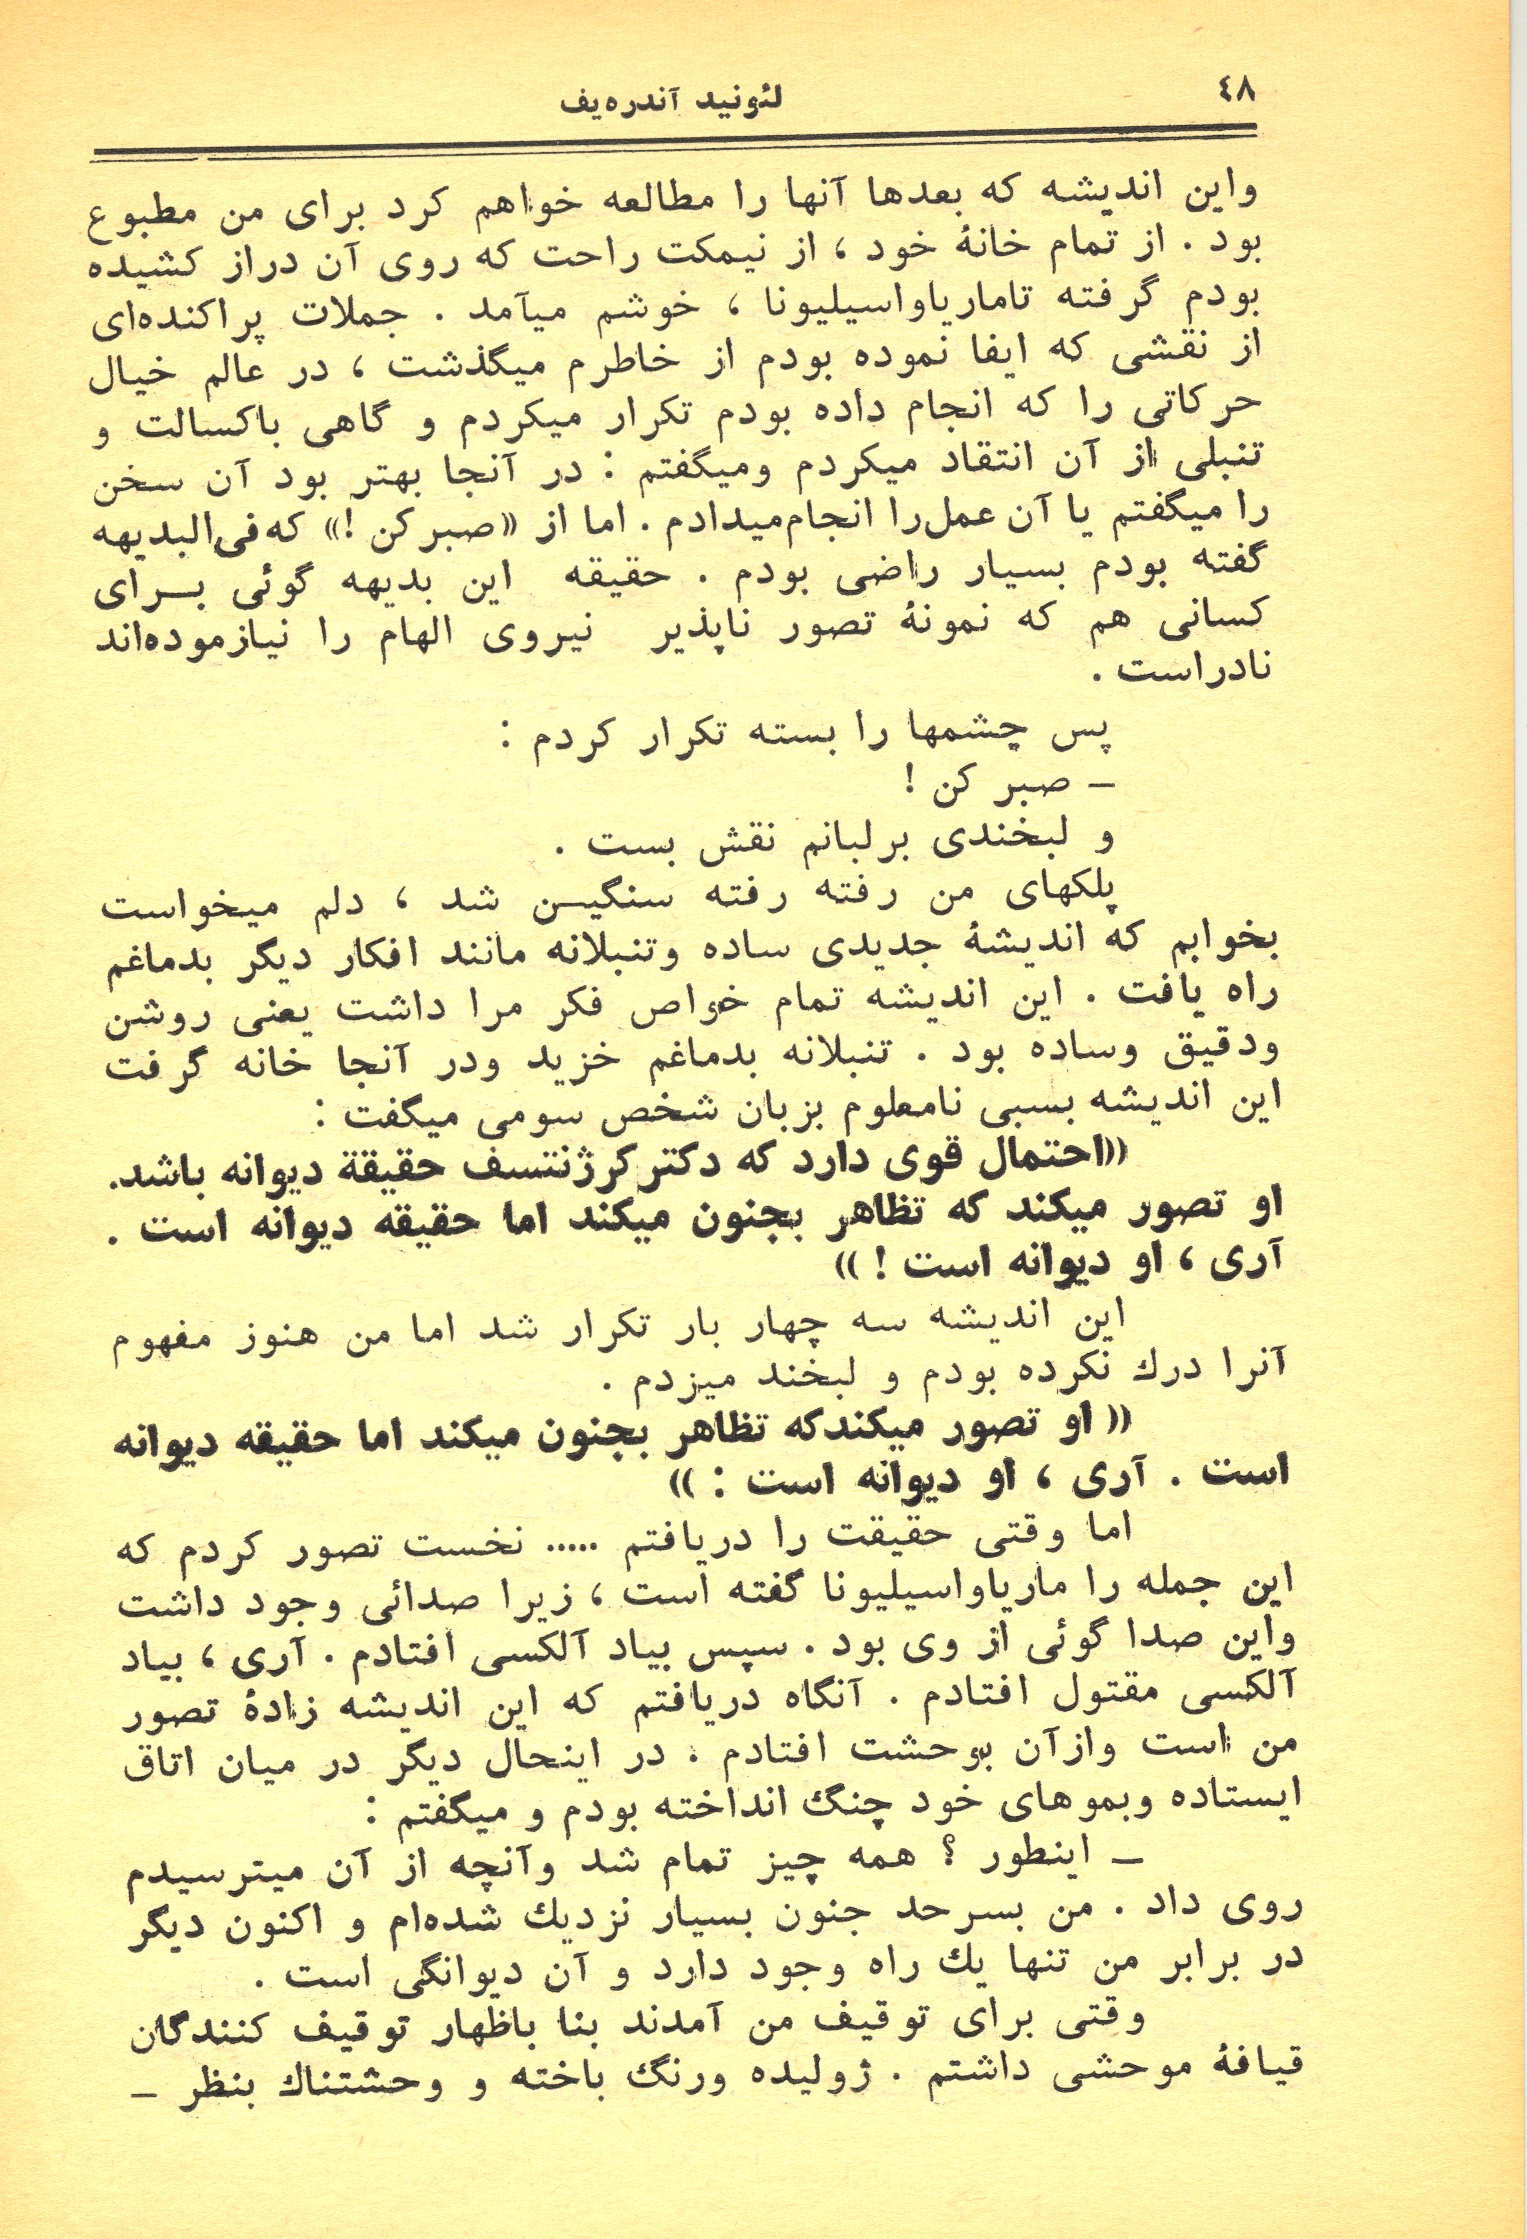 ٤٨
لئونید آندره‌یف
واین اندیشه که بعدها آنها را مطالعه خواهم کرد برای من مطبوع
بود . از تمام خانهٔ خود ، از نیمکت راحت که روی آن دراز کشیده
بودم گرفته تاماریاواسیلیونا ، خوشم میآمد . جملات پراکنده‌ای
از نقشی که ایفا نموده بودم از خاطرم میگذشت ، در عالم خیال
حرکاتی را که انجام داده بودم تکرار میکردم و گاهی باکسالت و
تنبلی از آن انتقاد میکردم ومیگفتم : در آنجا بهتر بود آن سخن
را میگفتم یا آن عمل‌را انجام‌میدادم . اما از «صبر کن !» که‌فی‌البدیهه
گفته بودم بسیار راضی بودم . حقیقه این بدیهه گوئی بـرای
کسانی هم که نمونهٔ تصور ناپذیر نیروی الهام را نیازموده‌اند
نادراست .
پس چشمها را بسته تکرار کردم :
– صبر کن !
و لبخندی برلبانم نقش بست .
پلکهای من رفته رفته سنگیـن شد ، دلم میخواست
بخوابم که اندیشهٔ جدیدی ساده وتنبلانه مانند افکار دیگر بدماغم
راه یافت . این اندیشه تمام خواص فکر مرا داشت یعنی روشن
ودقیق وساده بود . تنبلانه بدماغم خزید ودر آنجا خانه گرفت
این اندیشه بسبی نامعلوم بزبان شخص سومی میگفت :
«احتمال قوی دارد که دکتر کرژنتسف حقیقة دیوانه باشد.
او تصور میکند که تظاهر بجنون میکند اما حقیقه دیوانه است .
آری ، او دیوانه است ! »
این اندیشه سه چهار بار تکرار شد اما من هنوز مفهوم
آنرا درك نکرده بودم و لبخند میزدم .
« او تصور میکندکه تظاهر بجنون میکند اما حقیقه دیوانه
است . آری ، او دیوانه است : »
اما وقتی حقیقت را دریافتم ..... نخست تصور کردم که
این جمله را ماریاواسیلیونا گفته است ، زیرا صدائی وجود داشت
واین صدا گوئی از وی بود . سپس بیاد آلکسی افتادم . آری ، بیاد
آلکسی مقتول افتادم . آنگاه دریافتم که این اندیشه زادهٔ تصور
من است وازآن بوحشت افتادم . در اینحال دیگر در میان اتاق
ایستاده وبموهای خود چنگ انداخته بودم و میگفتم :
– اینطور ؟ همه چیز تمام شد وآنچه از آن میترسیدم
روی داد . من بسرحد جنون بسیار نزدیك شده‌ام و اکنون دیگر
در برابر من تنها یك راه وجود دارد و آن دیوانگی است .
وقتی برای توقیف من آمدند بنا باظهار توقیف کنندگان
قیافهٔ موحشی داشتم . ژولیده ورنگ باخته و وحشتناك بنظر –